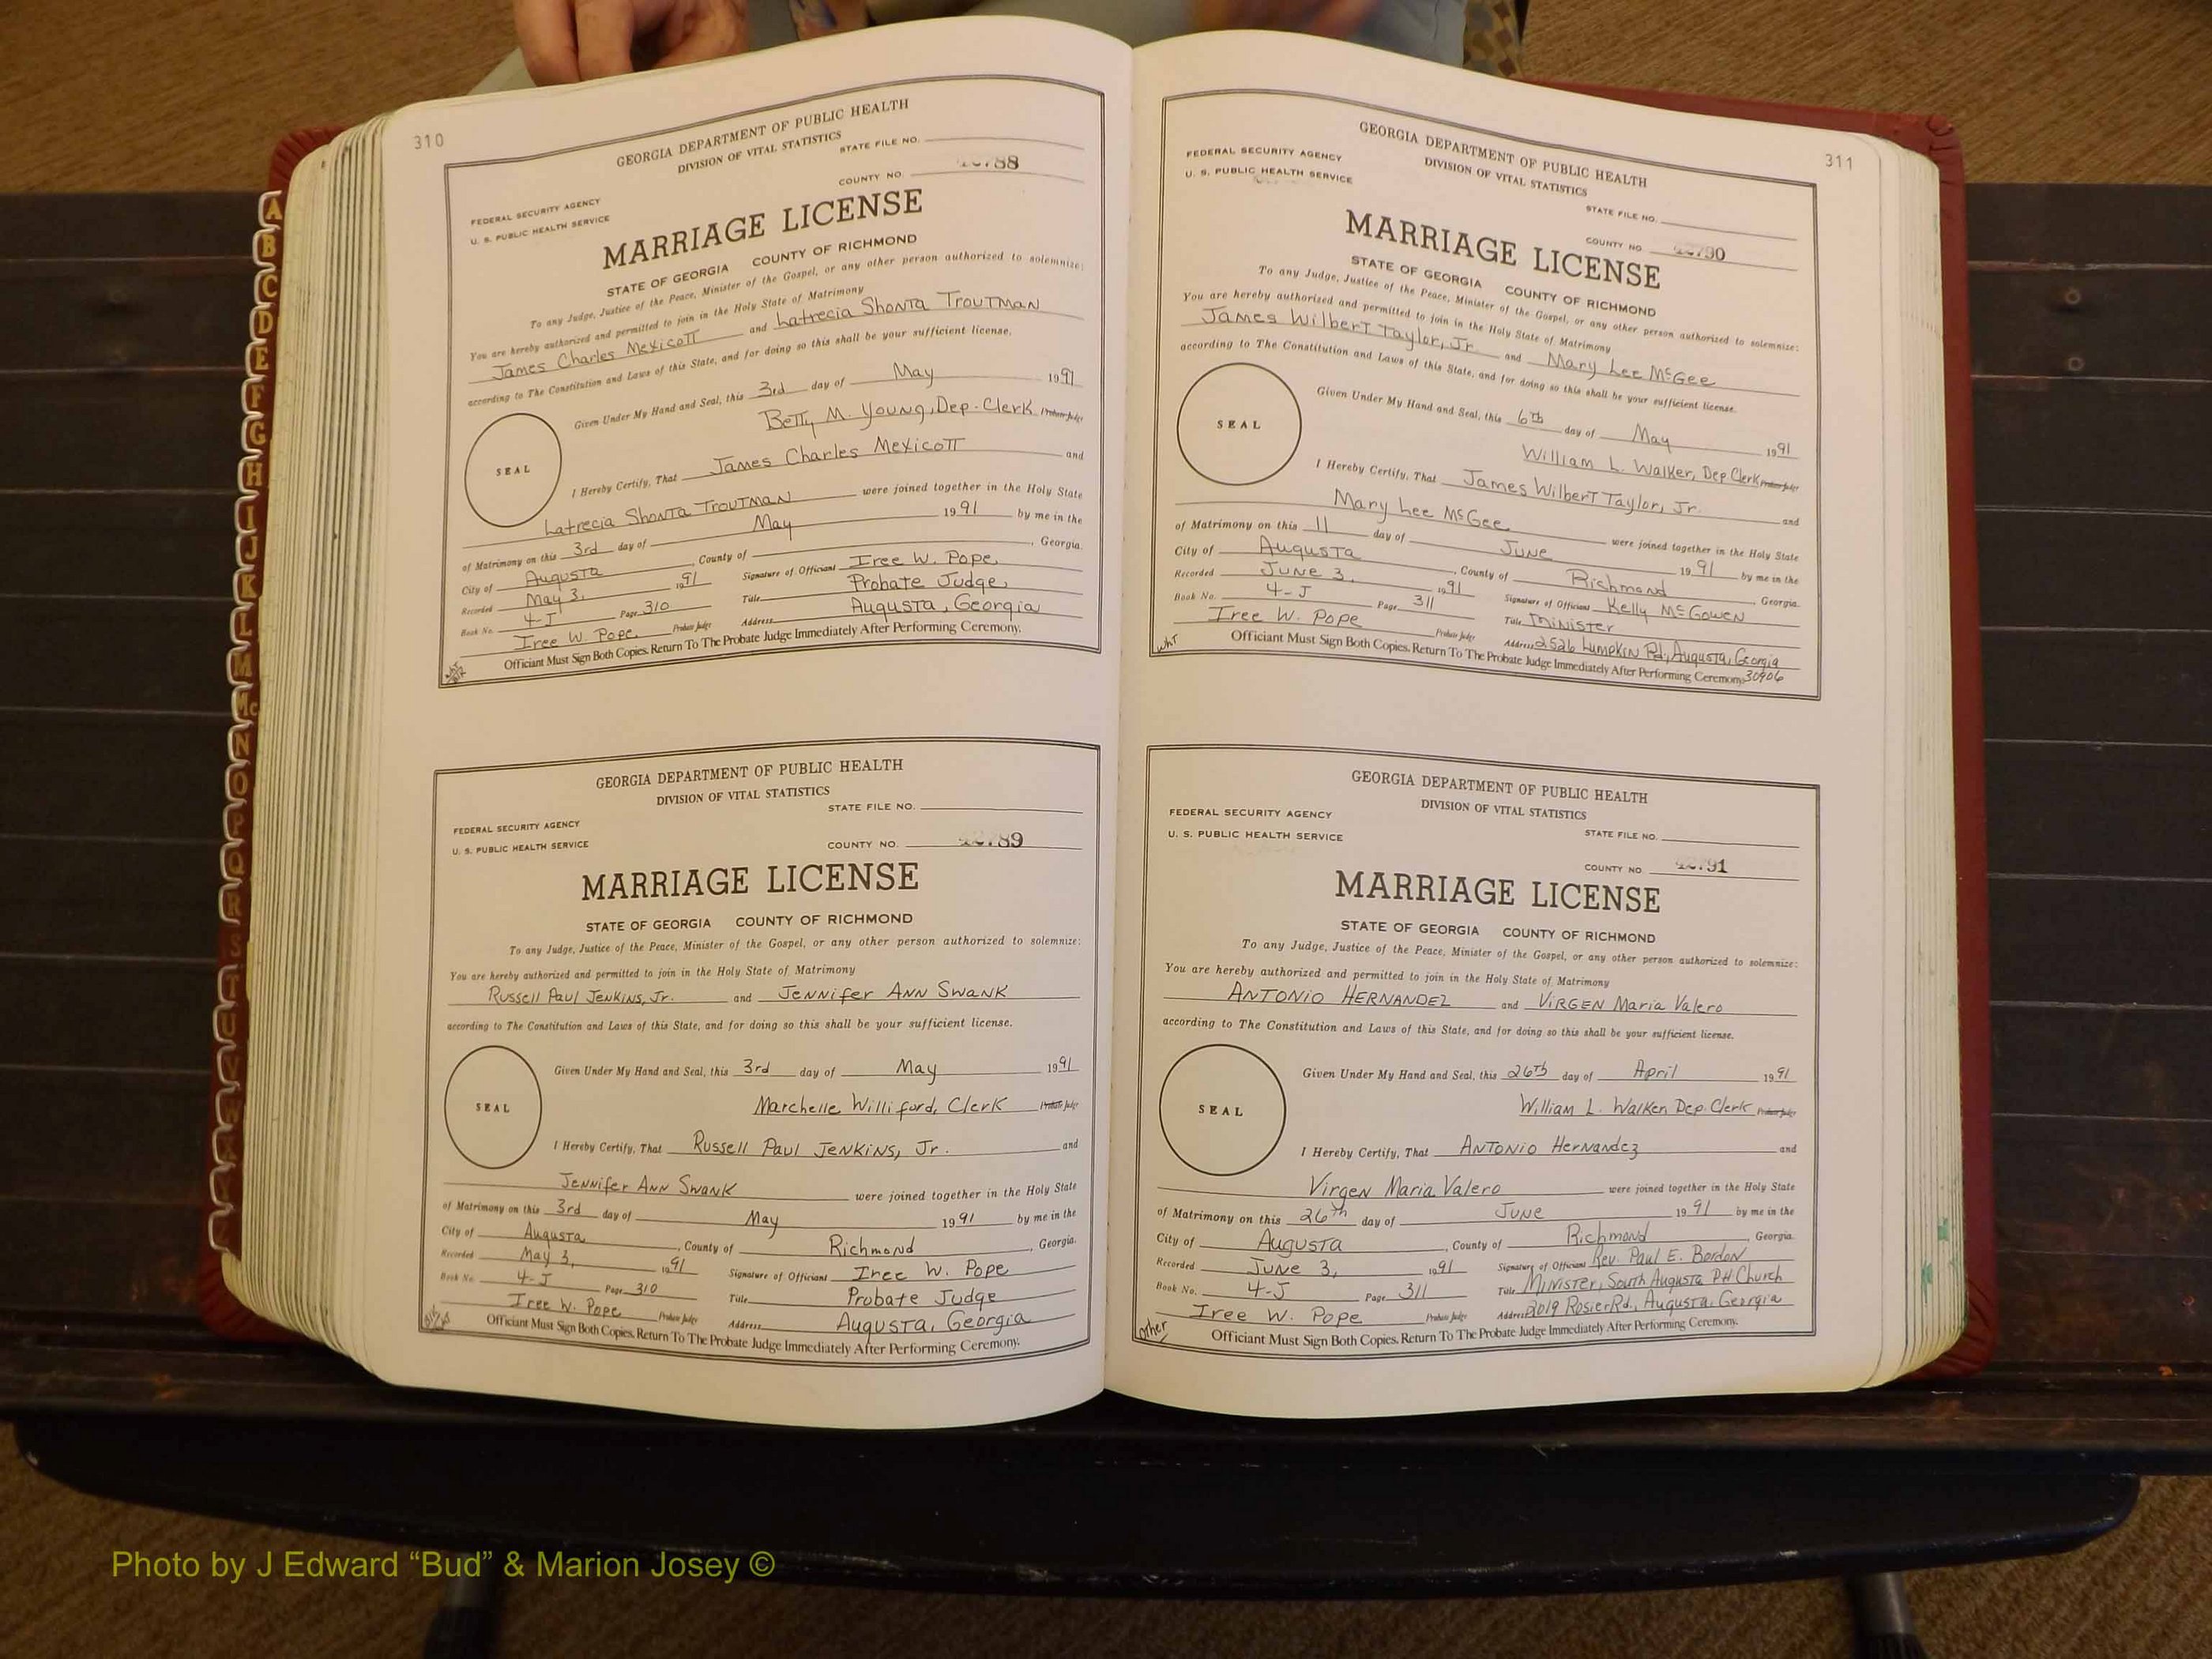 310
GEORGIA DEPARTMENT OF PUBLIC HEALTH
DIVISION OF VITAL STATISTICS
STATE FILE NO.
COUNTY NO. 88
FEDERAL SECURITY AGENCY
U. S. PUBLIC HEALTH SERVICE
MARRIAGE LICENSE
STATE OF GEORGIA COUNTY OF RICHMOND
To any Judge, Justice of the Peace, Minister of the Gospel, or any other person authorized to solemnize:
You are hereby authorized and permitted to join in the Holy State of Matrimony
James Charles Mexicott and Latrecia Shonta Troutman
according to The Constitution and Laws of this State, and for doing so this shall be your sufficient license.
Given Under My Hand and Seal, this 3rd day of May 1991
Betty M. Young, Dep. Clerk Probate Judge
SEAL
I Hereby Certify, That James Charles Mexicott and
Latrecia Shonta Troutman were joined together in the Holy State
of Matrimony on this 3rd day of May 1991 by me in the
City of Augusta, County of , Georgia.
Recorded May 3, 1991 Signature of Officiant Iree W. Pope
Book No. 4-J Page 310 Title Probate Judge
Iree W. Pope Probate Judge Address Augusta, Georgia
Officiant Must Sign Both Copies. Return To The Probate Judge Immediately After Performing Ceremony.
GEORGIA DEPARTMENT OF PUBLIC HEALTH
DIVISION OF VITAL STATISTICS
STATE FILE NO.
FEDERAL SECURITY AGENCY
U. S. PUBLIC HEALTH SERVICE
COUNTY NO. 89
MARRIAGE LICENSE
STATE OF GEORGIA COUNTY OF RICHMOND
To any Judge, Justice of the Peace, Minister of the Gospel, or any other person authorized to solemnize:
You are hereby authorized and permitted to join in the Holy State of Matrimony
Russell Paul Jenkins, Jr. and Jennifer Ann Swank
according to The Constitution and Laws of this State, and for doing so this shall be your sufficient license.
Given Under My Hand and Seal, this 3rd day of May 1991
Marchelle Williford, Clerk Probate Judge
SEAL
I Hereby Certify, That Russell Paul Jenkins, Jr. and
Jennifer Ann Swank were joined together in the Holy State
of Matrimony on this 3rd day of May 1991 by me in the
City of Augusta, County of Richmond, Georgia.
Recorded May 3, 1991 Signature of Officiant Iree W. Pope
Book No. 4-J Page 310 Title Probate Judge
Iree W. Pope Probate Judge Address Augusta, Georgia
Officiant Must Sign Both Copies. Return To The Probate Judge Immediately After Performing Ceremony.
311
GEORGIA DEPARTMENT OF PUBLIC HEALTH
DIVISION OF VITAL STATISTICS
FEDERAL SECURITY AGENCY
U. S. PUBLIC HEALTH SERVICE
STATE FILE NO.
COUNTY NO. 42790
MARRIAGE LICENSE
STATE OF GEORGIA COUNTY OF RICHMOND
To any Judge, Justice of the Peace, Minister of the Gospel, or any other person authorized to solemnize:
You are hereby authorized and permitted to join in the Holy State of Matrimony
James Wilbert Taylor, Jr. and Mary Lee McGee
according to The Constitution and Laws of this State, and for doing so this shall be your sufficient license.
Given Under My Hand and Seal, this 6th day of May 1991
William L. Walker, Dep. Clerk Probate Judge
SEAL
I Hereby Certify, That James Wilbert Taylor, Jr. and
Mary Lee McGee were joined together in the Holy State
of Matrimony on this 11 day of June 1991 by me in the
City of Augusta, County of Richmond, Georgia.
Recorded June 3, 1991 Signature of Officiant Kelly McGowen
Book No. 4-J Page 311 Title Minister
Iree W. Pope Probate Judge Address 2526 Lumpkin Rd., Augusta, Georgia
wht Officiant Must Sign Both Copies. Return To The Probate Judge Immediately After Performing Ceremony. 30906
GEORGIA DEPARTMENT OF PUBLIC HEALTH
DIVISION OF VITAL STATISTICS
FEDERAL SECURITY AGENCY
U. S. PUBLIC HEALTH SERVICE
STATE FILE NO.
COUNTY NO. 42791
MARRIAGE LICENSE
STATE OF GEORGIA COUNTY OF RICHMOND
To any Judge, Justice of the Peace, Minister of the Gospel, or any other person authorized to solemnize:
You are hereby authorized and permitted to join in the Holy State of Matrimony
Antonio Hernandez and Virgen Maria Valero
according to The Constitution and Laws of this State, and for doing so this shall be your sufficient license.
Given Under My Hand and Seal, this 26th day of April 1991
William L. Walker, Dep. Clerk Probate Judge
SEAL
I Hereby Certify, That Antonio Hernandez and
Virgen Maria Valero were joined together in the Holy State
of Matrimony on this 26th day of June 1991 by me in the
City of Augusta, County of Richmond, Georgia.
Recorded June 3, 1991 Signature of Officiant Rev. Paul E. Bordon
Book No. 4-J Page 311 Title Minister, South Augusta P.H. Church
Iree W. Pope Probate Judge Address 2019 Rosier Rd., Augusta, Georgia
other Officiant Must Sign Both Copies. Return To The Probate Judge Immediately After Performing Ceremony.
A
B
C
D
E
F
G
H
I
J
K
L
M
Mc
N
O
P
Q
R
S
T
U
V
W
Photo by J Edward “Bud” & Marion Josey ©